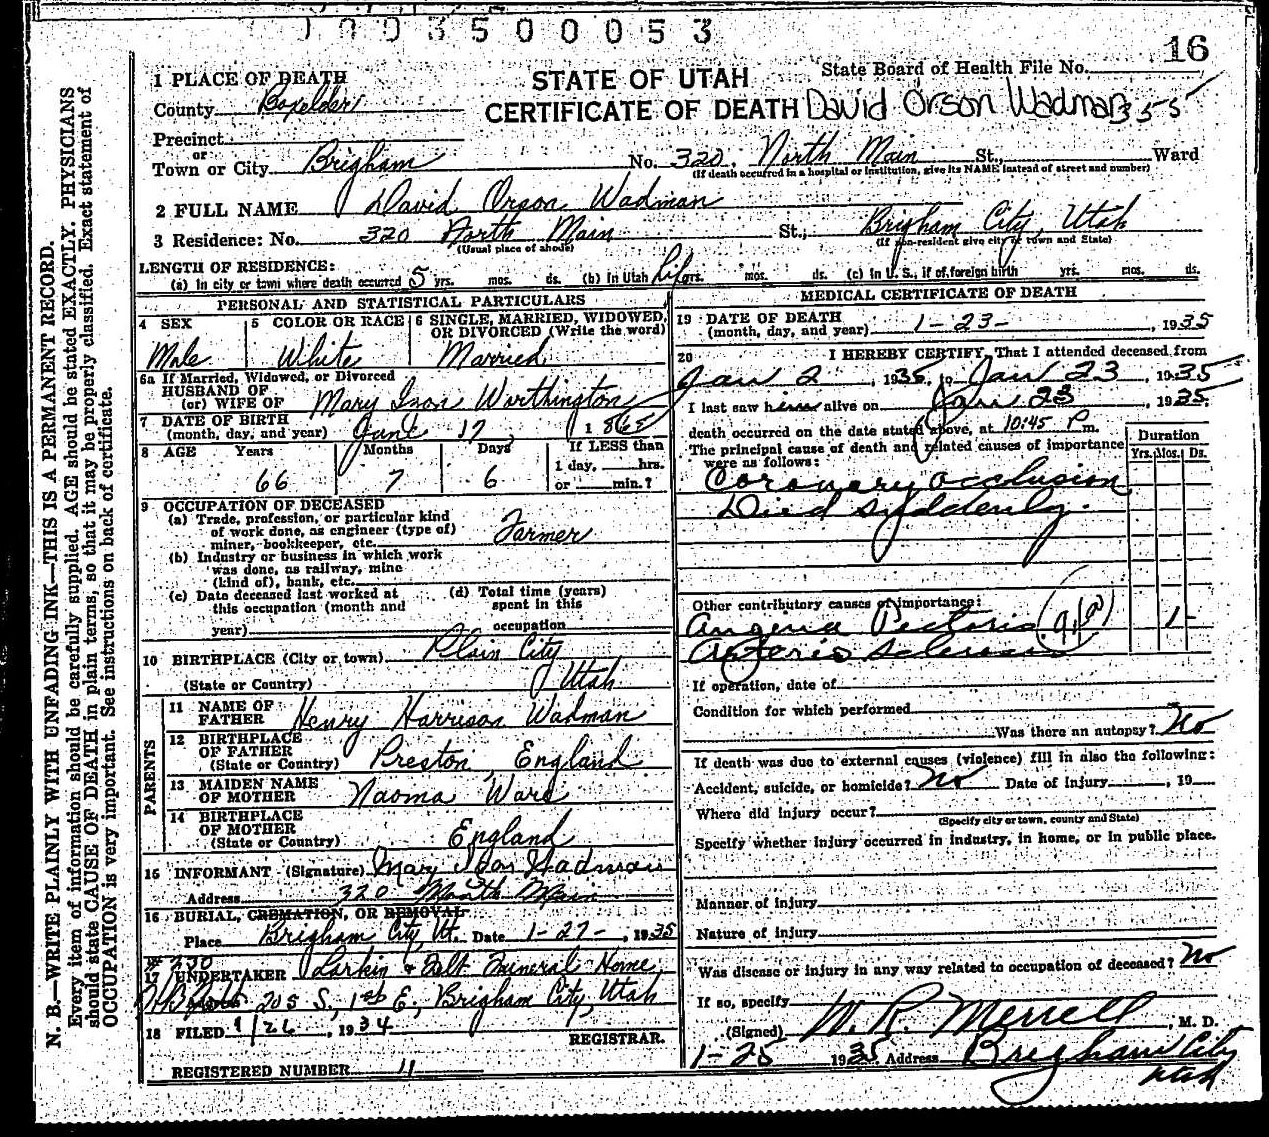 1003500053
16
1 PLACE OF DEATH
STATE OF UTAH
State Board of Health File No.
County Boxelder
CERTIFICATE OF DEATH David Orson Wadman 355
Precinct
or
Town or City Brigham No. 320 North Main St., Ward
(If death occurred in a hospital or institution, give its NAME instead of street and number)
2 FULL NAME David Orson Wadman
3 Residence: No. 320 North Main St., Brigham City, Utah
(Usual place of abode) (If non-resident give city or town and State)
LENGTH OF RESIDENCE:
(a) In city or town where death occurred 5 yrs. mos. ds. (b) In Utah Life yrs. mos. ds. (c) In U. S., if of foreign birth yrs. mos. ds.
PERSONAL AND STATISTICAL PARTICULARS
4 SEX 5 COLOR OR RACE 6 SINGLE, MARRIED, WIDOWED, OR DIVORCED (Write the word)
Male White Married
6a If Married, Widowed, or Divorced
HUSBAND OF
(or) WIFE OF Mary Worthington
7 DATE OF BIRTH
(month, day, and year) June 17, 1868
8 AGE Years Months Days If LESS than
66 7 6 1 day, hrs.
or min.?
9 OCCUPATION OF DECEASED
(a) Trade, profession, or particular kind
of work done, as engineer (type of)
miner, bookkeeper, etc. Farmer
(b) Industry or business in which work
was done, as railway, mine
(kind of), bank, etc.
(c) Date deceased last worked at
this occupation (month and
year)
(d) Total time (years)
spent in this
occupation
10 BIRTHPLACE (City or town) Plain City
(State or Country) Utah
PARENTS
11 NAME OF
FATHER Henry Harrison Wadman
12 BIRTHPLACE
OF FATHER
(State or Country) Preston, England
13 MAIDEN NAME
OF MOTHER Naoma Ward
14 BIRTHPLACE
OF MOTHER
(State or Country) England
15 INFORMANT (Signature) Mary Wadman
Address 320 North Main
16 BURIAL, CREMATION, OR REMOVAL
Place Brigham City, Ut. Date 1-27-, 1935
#230
17 UNDERTAKER Larkin & Felt Funeral Home
Address 205 S, 1st E, Brigham City, Utah
18 FILED 1/26, 1934
REGISTRAR.
REGISTERED NUMBER 11
MEDICAL CERTIFICATE OF DEATH
19 DATE OF DEATH
(month, day, and year) 1-23-, 1935
20 I HEREBY CERTIFY, That I attended deceased from
Jan 2, 1935, to Jan 23, 1935
I last saw him alive on Jan 23, 1935.
death occurred on the date stated above, at 10:45 P.m.
The principal cause of death and related causes of importance
were as follows:
Duration
Yrs. Mos. Ds.
Coronary occlusion
Died suddenly.
Other contributory causes of importance:
Angina Pectoris 1-
Arterio sclerosis
If operation, date of
Condition for which performed
Was there an autopsy? No
If death was due to external causes (violence) fill in also the following:
Accident, suicide, or homicide? No Date of injury, 19
Where did injury occur?
(Specify city or town, county and State)
Specify whether injury occurred in industry, in home, or in public place.
Manner of injury
Nature of injury
Was disease or injury in any way related to occupation of deceased? No
If so, specify
(Signed) W. R. Merrell, M. D.
1-25 1935 Address Brigham City
Utah
N. B.—WRITE PLAINLY WITH UNFADING INK—THIS IS A PERMANENT RECORD.
Every item of information should be carefully supplied. AGE should be stated EXACTLY. PHYSICIANS
should state CAUSE OF DEATH in plain terms, so that it may be properly classified. Exact statement of
OCCUPATION is very important. See instructions on back of certificate.